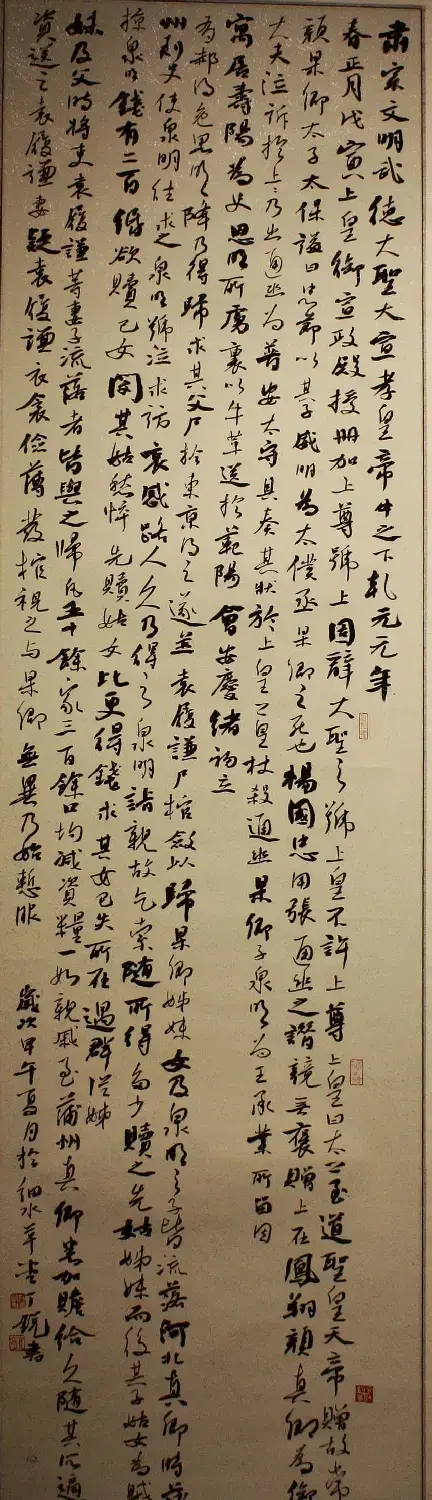 肅宗文明武德大聖大宣孝皇帝中之下乾元元年
春正月戊寅上皇御宣政殿授冊加上尊號上固辭大聖之號上皇不許上尊上皇曰太上至道聖皇天帝贈故常
顏杲卿太子太保謚曰忠節以其子威明為太僕丞杲卿之死也楊國忠用張通幽之譖竟無褒贈上在鳳翔顏真卿為御
大夫泣訴於上上乃出通幽為普安太守具奏其狀於上皇上皇杖殺通幽杲卿子泉明為王承業所留因
寓居壽陽為史思明所虜裹以牛革送於範陽會安慶緒初立
有赦得免思明降乃得歸求其父尸於東京得之遂並袁履謙尸棺斂以歸杲卿姊妹女及泉明之子皆流落河北真卿時為
州刺史使泉明往求之泉明號泣求訪哀感路人久乃得之泉明詣親故乞索隨所得多少贖之先姑姊妹而後其子姑女為賊
掠泉明錢有二百緡欲贖己女閔其姑愁悴先贖姑女比更得錢求其女已失所在遇群從姊
妹及父時將吏袁履謙等妻子流落者皆與之歸凡五十餘家三百餘口均減資糧一如親戚至蒲州真卿悉加贍給久隨其所適
資送之袁履謙妻疑袁履謙衣衾儉薄發棺視之与杲卿無異乃始慙服 歲次甲午夏月於細水草堂丁銳書